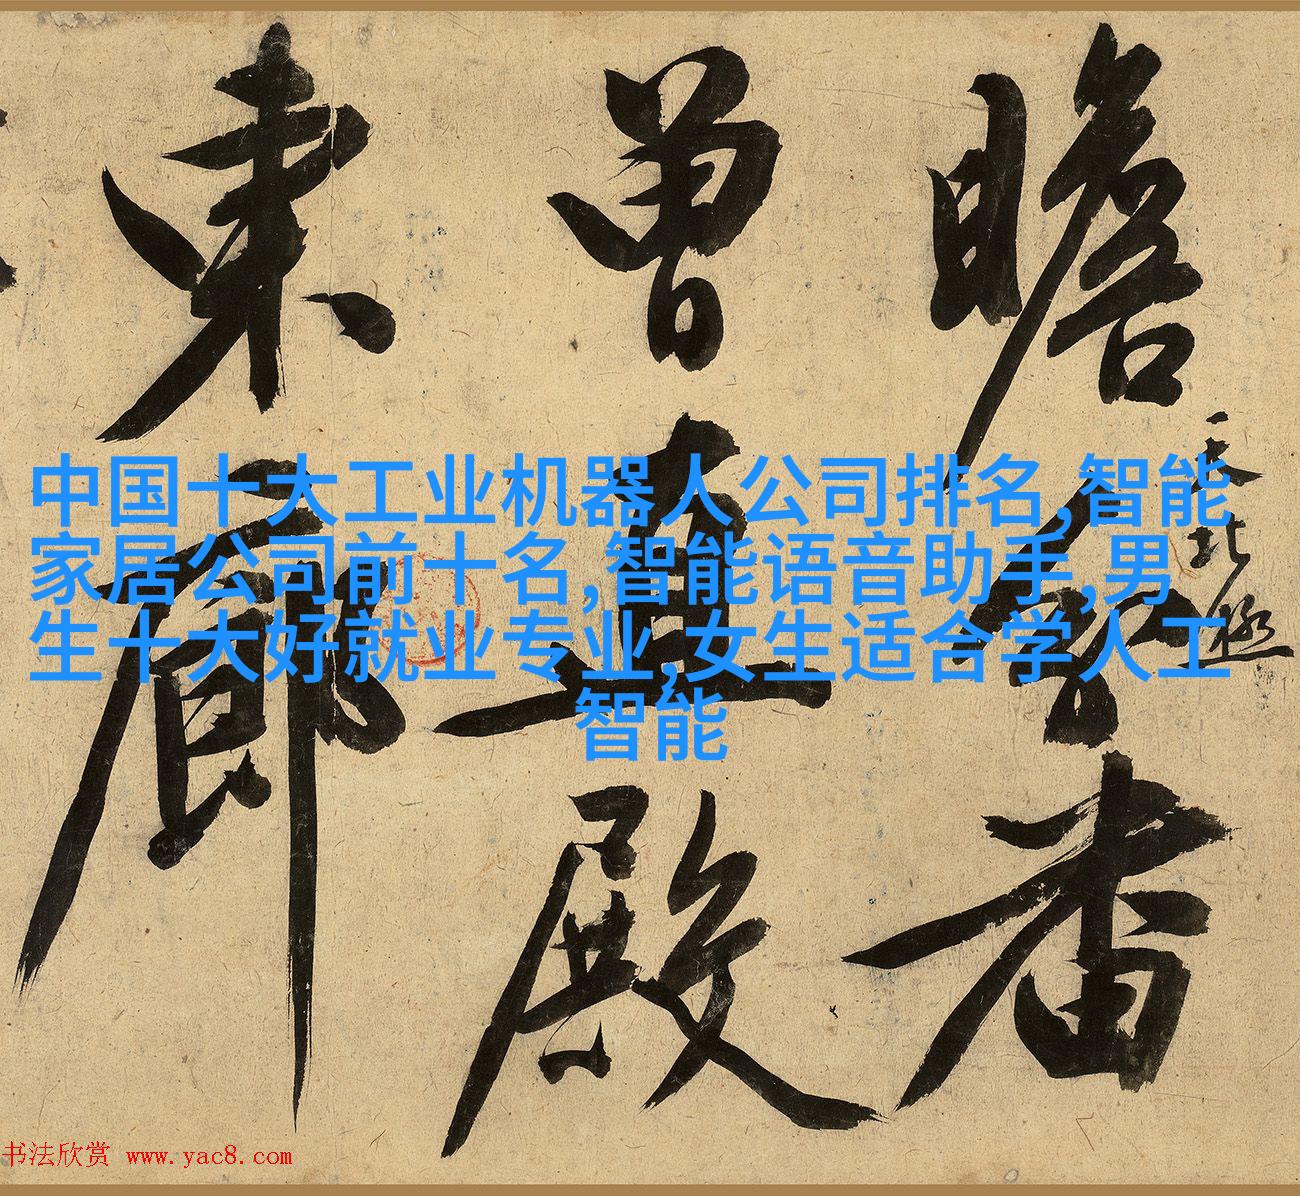 瞻
学
者
天
北
極
曾
直
殿
東
廊
中国十大工业机器人公司排名,智能
家居公司前十名,智能语音助手,男
生十大好就业专业,女生适合学人工
智能
书法欣赏 www.yac8.com